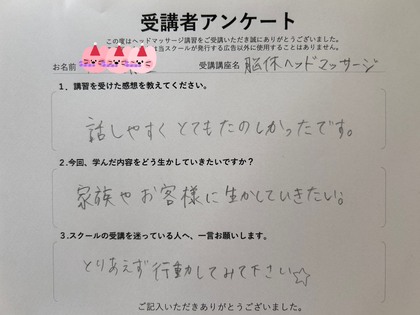 受講者アンケート
この度はヘッドマッサージ講習をご受講いただき誠にありがとうございました。
当スクールが発行する広告以外に使用することはありません。
お名前
受講講座名 脳休ヘッドマッサージ
1、講習を受けた感想を教えてください。
話しやすく とてもたのしかったです。
2.今回、学んだ内容をどう生かしていきたいですか？
家族や お客様に 生かしていきたい。
3.スクールの受講を迷っている人へ、一言お願いします。
とりあえず 行動してみて下さい☆
ご記入いただきありがとうございました。